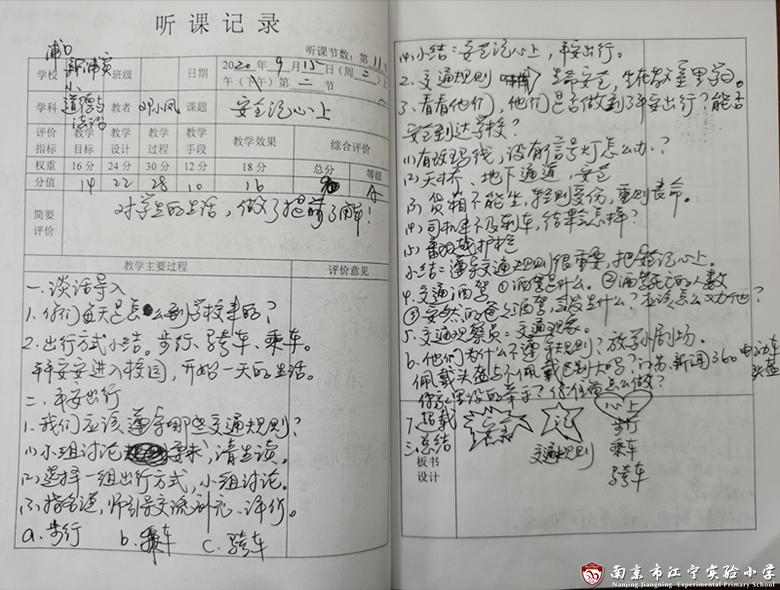 听课记录
听课节数：第11
学校 浦口新浦实小 班级 日期 2020年9月15日（周二）上午（下午）第二节
学科 道德与法治 教者 邓小凤 课题 安全记心上
评价指标 教学目标 教学设计 教学过程 教学手段 教学效果 综合评价
权重 16分 24分 30分 12分 18分 总分 等级
分值 14 22 28 10 16 90 A
简要评价 对学生的生活，做了提前了解！
教学主要过程 评价意见
一、谈话导入
1、你们每天是怎么到学校来的？
2、出行方式小结。步行、骑车、乘车。
平平安安进入校园，开始一天的生活。
二、平安出行
1、我们应该遵守哪些交通规则？
(1)小组讨论 要求，请生读。
(2)选择一组出行方式，小组讨论。
(3)指名说，师引导交流补充、评价。
a、步行 b、乘车 c、骑车
(4)小结：安全记心上，平安出行。
2、交通规则
3、看看他们，他们是否做到了平安出行？能否
安全到达学校？
(1)有斑马线，没有信号灯怎么办？
(2)天桥、地下通道，安全
(3)货箱不能坐，轻则受伤，重则丧命。
(4)司机来不及刹车，结果会怎样？
(5)翻越护栏
小结：遵守交通规则很重要，把安全记心上。
4、交通酒驾 ①酒驾是什么。②酒驾死亡的人数
5、交通观察员：交通现象。
6、他们为什么不遵守规则？放学小剧场。
佩戴头盔与不佩戴区别大吗？江苏、新闻360 电动车头盔
7、
三、总结
板书设计
安全 记 心上
交通规则
步行
乘车
骑车
南京市江宁实验小学
Nanjing Jiangning Experimental Primary School